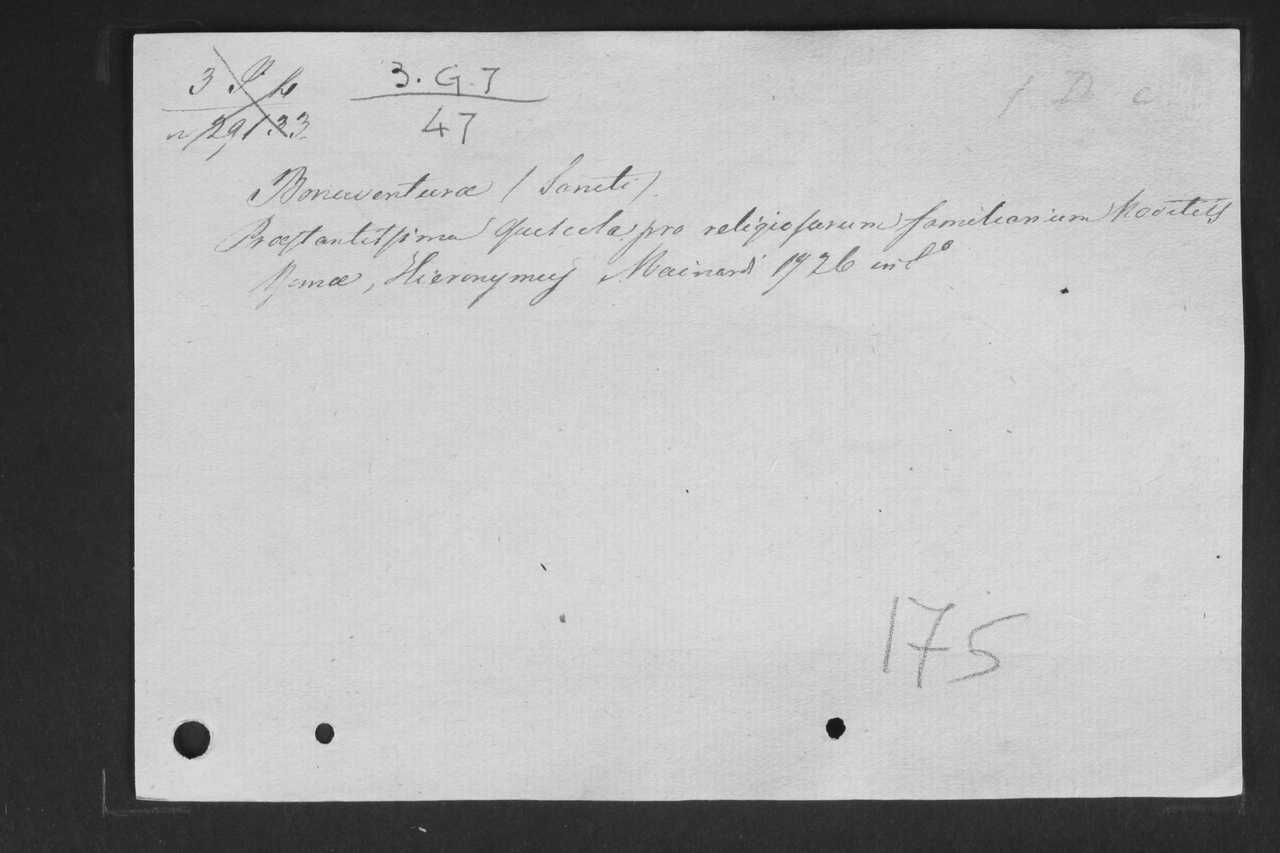 3. G. 7
47
Bonaventuræ (Sancti).
Præstantissima Opuscula pro religiosarum familiarium Novitiis
Romæ, Hieronymus Mainardi 1726 in 8°
175